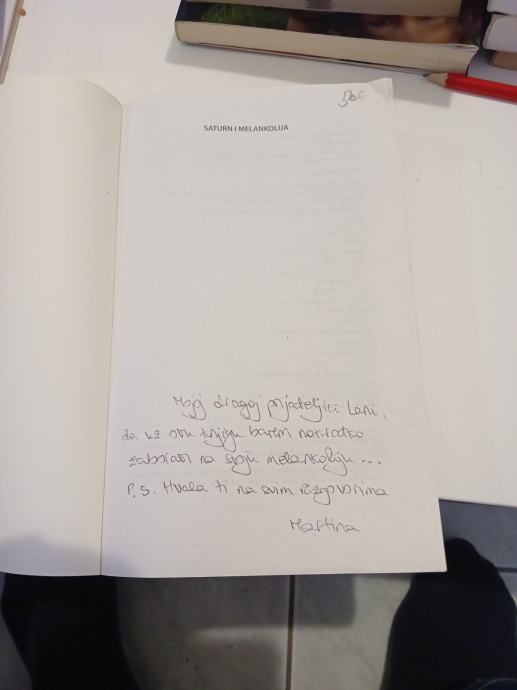 50€
SATURN I MELANKOLIJA
Mojoj dragoj prijateljici Lani,
da uz ovu knjigu barem nakratko
zaboravi na svoju melankoliju...
P.S. Hvala ti na svim razgovorima
Martina